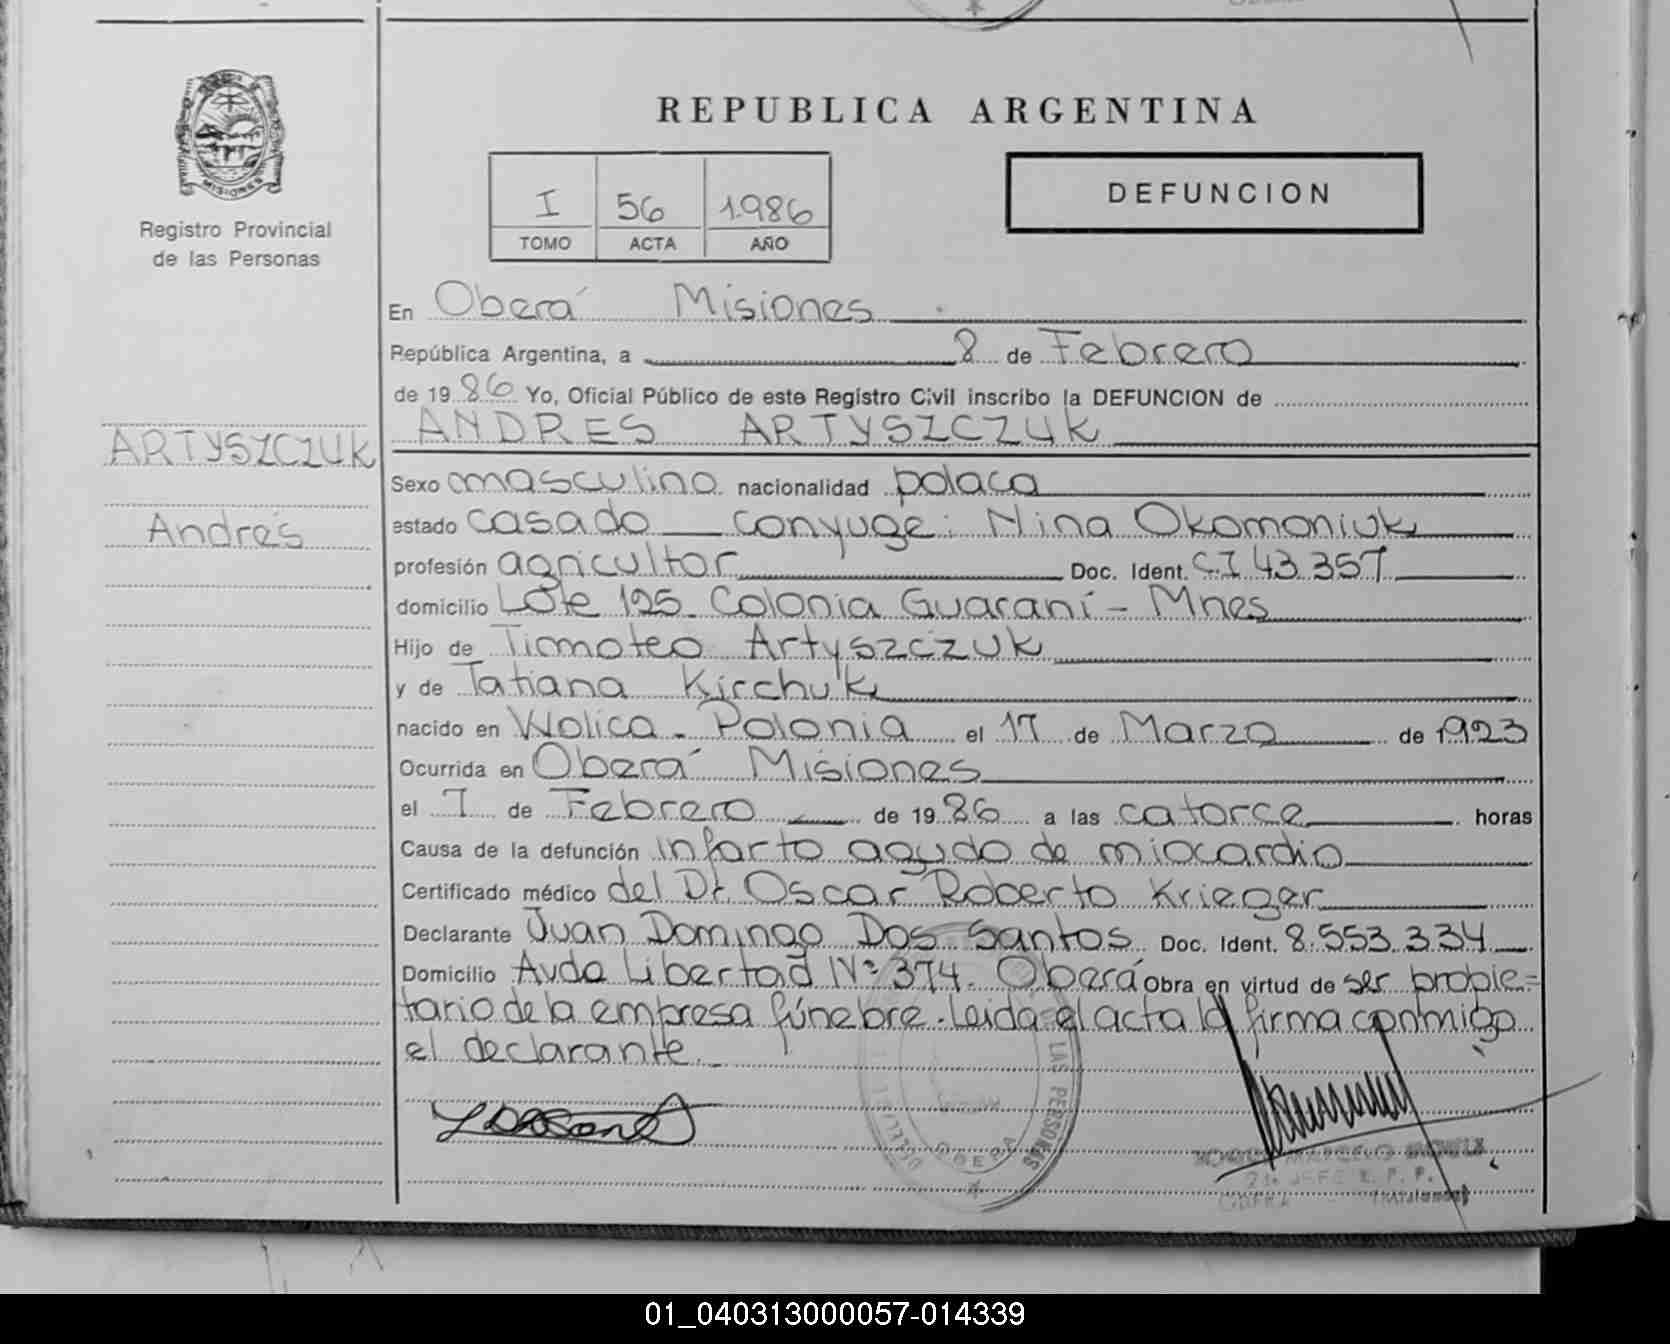 REPUBLICA ARGENTINA
MISIONES
Registro Provincial
de las Personas
I 56 1986
TOMO ACTA AÑO
DEFUNCION
ARTYSZCZUK
Andrés
En Oberá Misiones
República Argentina, a 8 de Febrero
de 1986 Yo, Oficial Público de este Registro Civil inscribo la DEFUNCION de
ANDRES ARTYSZCZUK
Sexo masculino nacionalidad polaca
estado casado conyuge: Nina Okomoniuk
profesión agricultor Doc. Ident. C.I 43.357
domicilio Lote 125 Colonia Guaraní - Mnes
Hijo de Timoteo Artyszczuk
y de Tatiana Kirchuk
nacido en Wolica - Polonia el 17 de Marzo de 1923
Ocurrida en Oberá Misiones
el 7 de Febrero de 1986 a las catorce horas
Causa de la defunción infarto agudo de miocardio
Certificado médico del Dr. Oscar Roberto Krieger
Declarante Juan Domingo Dos Santos Doc. Ident. 8.553.334
Domicilio Avda Libertad Nº 374. Oberá Obra en virtud de ser propie=
tario de la empresa fúnebre. Leida el acta la firma conmigo
el declarante.
LAS PERSONAS
OBERA
MARCELO
OBERA (Misiones)
01_040313000057-014339